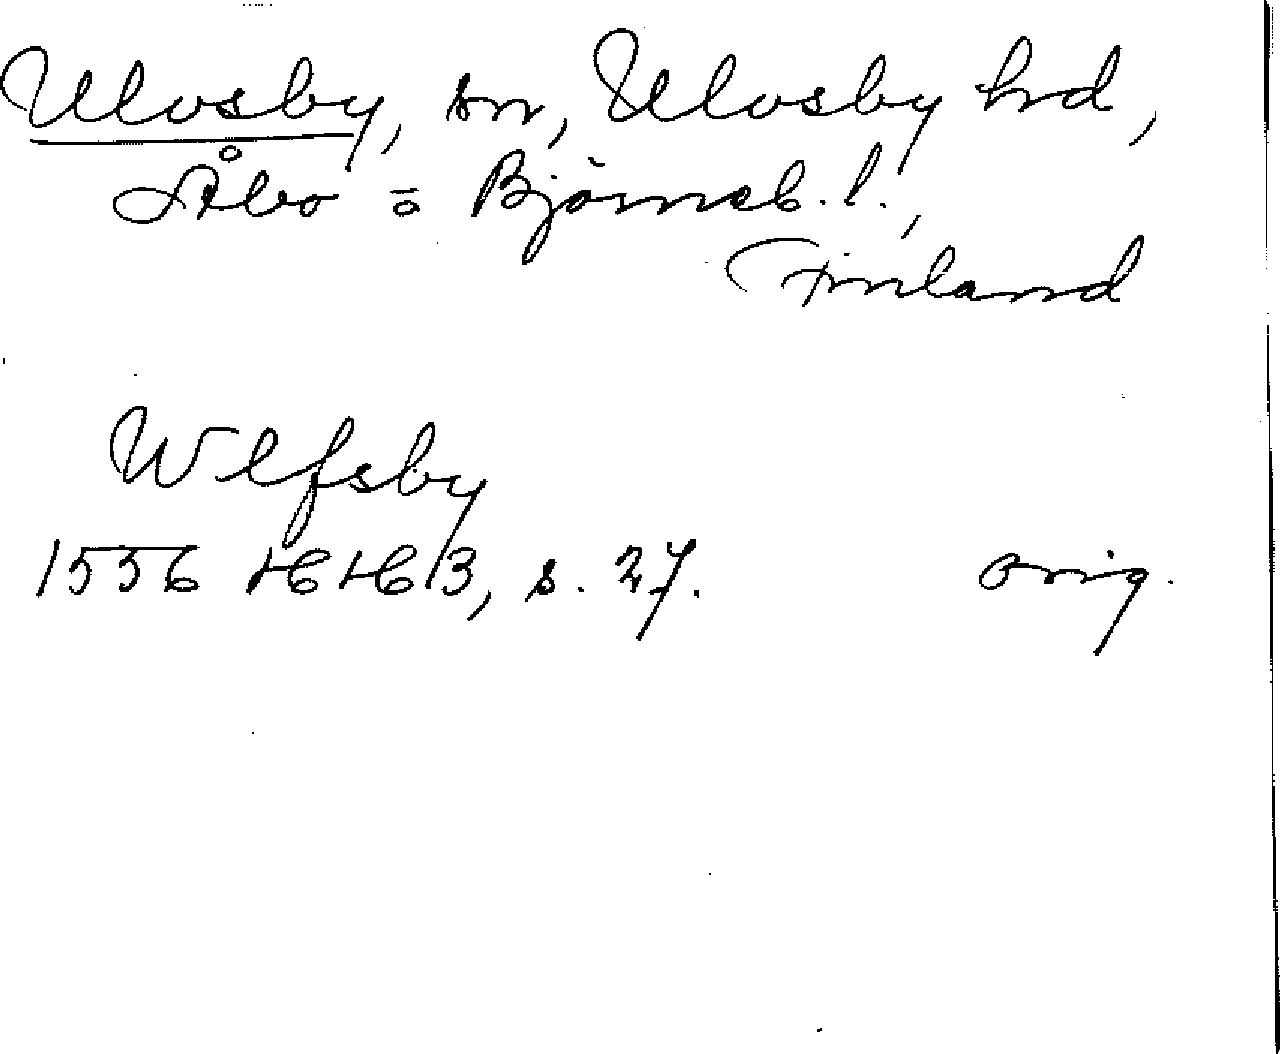 Ulvsby, sn, Ulvsby hrd,
Åbo o Björneb. l.,
Finland
Wlfsby
1556 HH 13, s. 27.
orig.